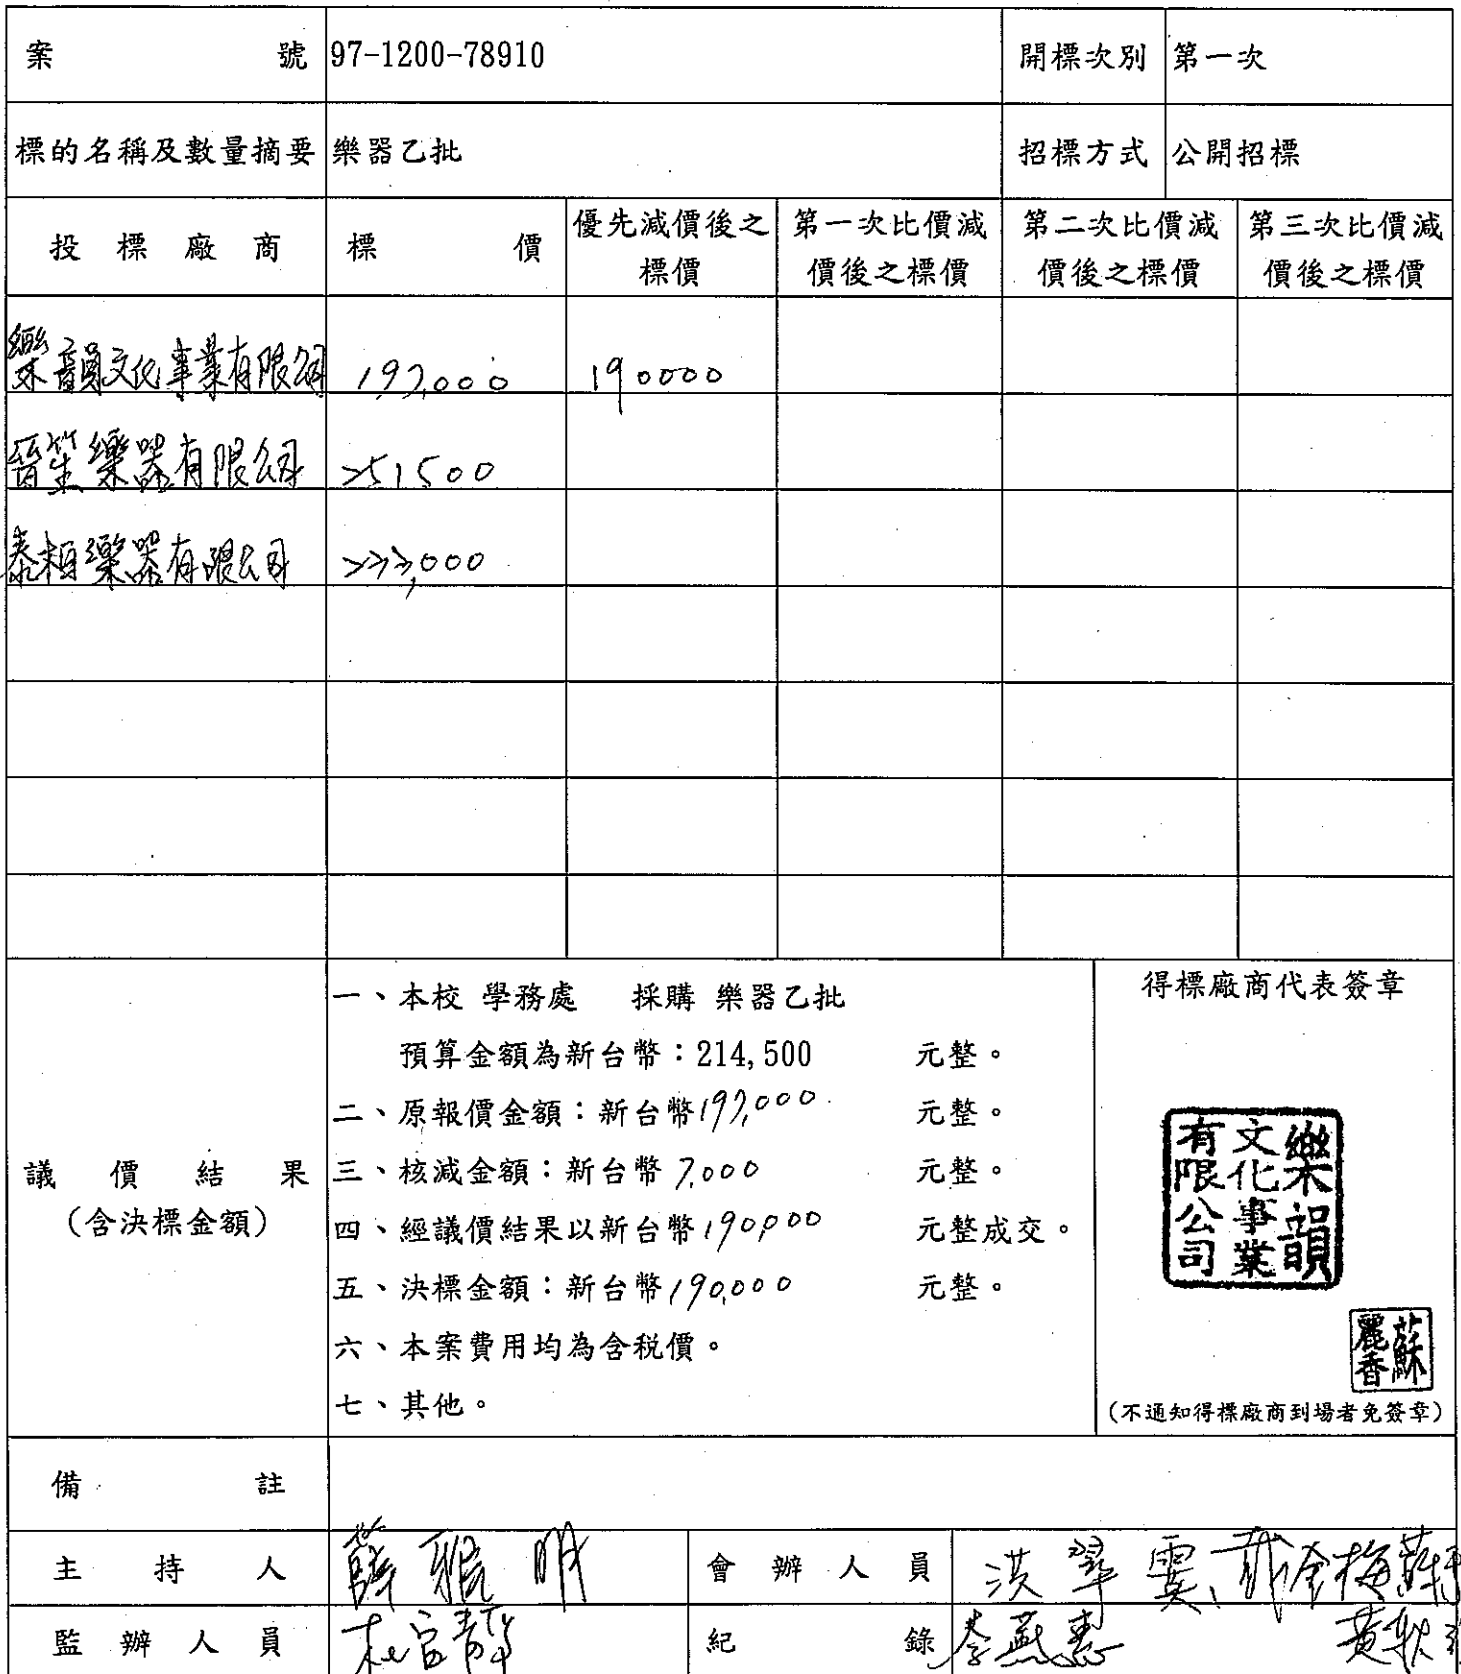 案號 97-1200-78910 開標次別 第一次
標的名稱及數量摘要 樂器乙批 招標方式 公開招標
投標廠商 標價 優先減價後之標價 第一次比價減價後之標價 第二次比價減價後之標價 第三次比價減價後之標價
樂韻文化事業有限公司 197,000 190000
晉笙樂器有限公司 251500
泰相樂器有限公司
議價結果
(含決標金額)
一、本校 學務處 採購 樂器乙批
預算金額為新台幣：214,500 元整。
二、原報價金額：新台幣197,000 元整。
三、核減金額：新台幣 7,000 元整。
四、經議價結果以新台幣190,000 元整成交。
五、決標金額：新台幣190,000 元整。
六、本案費用均為含稅價。
七、其他。
得標廠商代表簽章
樂韻
文化事業
有限公司
蘇麗香
(不通知得標廠商到場者免簽章)
備註
主持人 會辦人員
監辦人員 紀錄